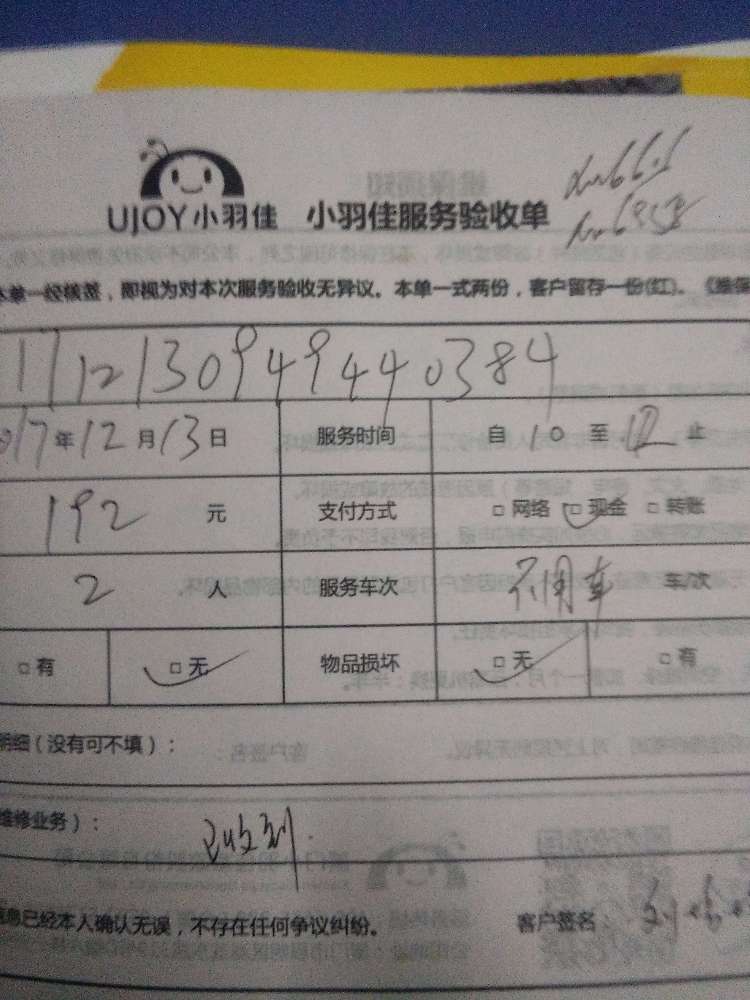 UJOY小羽佳 小羽佳服务验收单
本单一经核签，即视为对本次服务验收无异议。本单一式两份，客户留存一份(红)。《维保
171213094944 0384
017年12月13日 服务时间 自10至12止
192 元 支付方式 □网络 □现金 □转账
2 人 服务车次 不用车 车/次
□有 □无 物品损坏 □无 □有
明细(没有可不填)：
维修业务)： 已收到.
信息已经本人确认无误，不存在任何争议纠纷。 客户签名